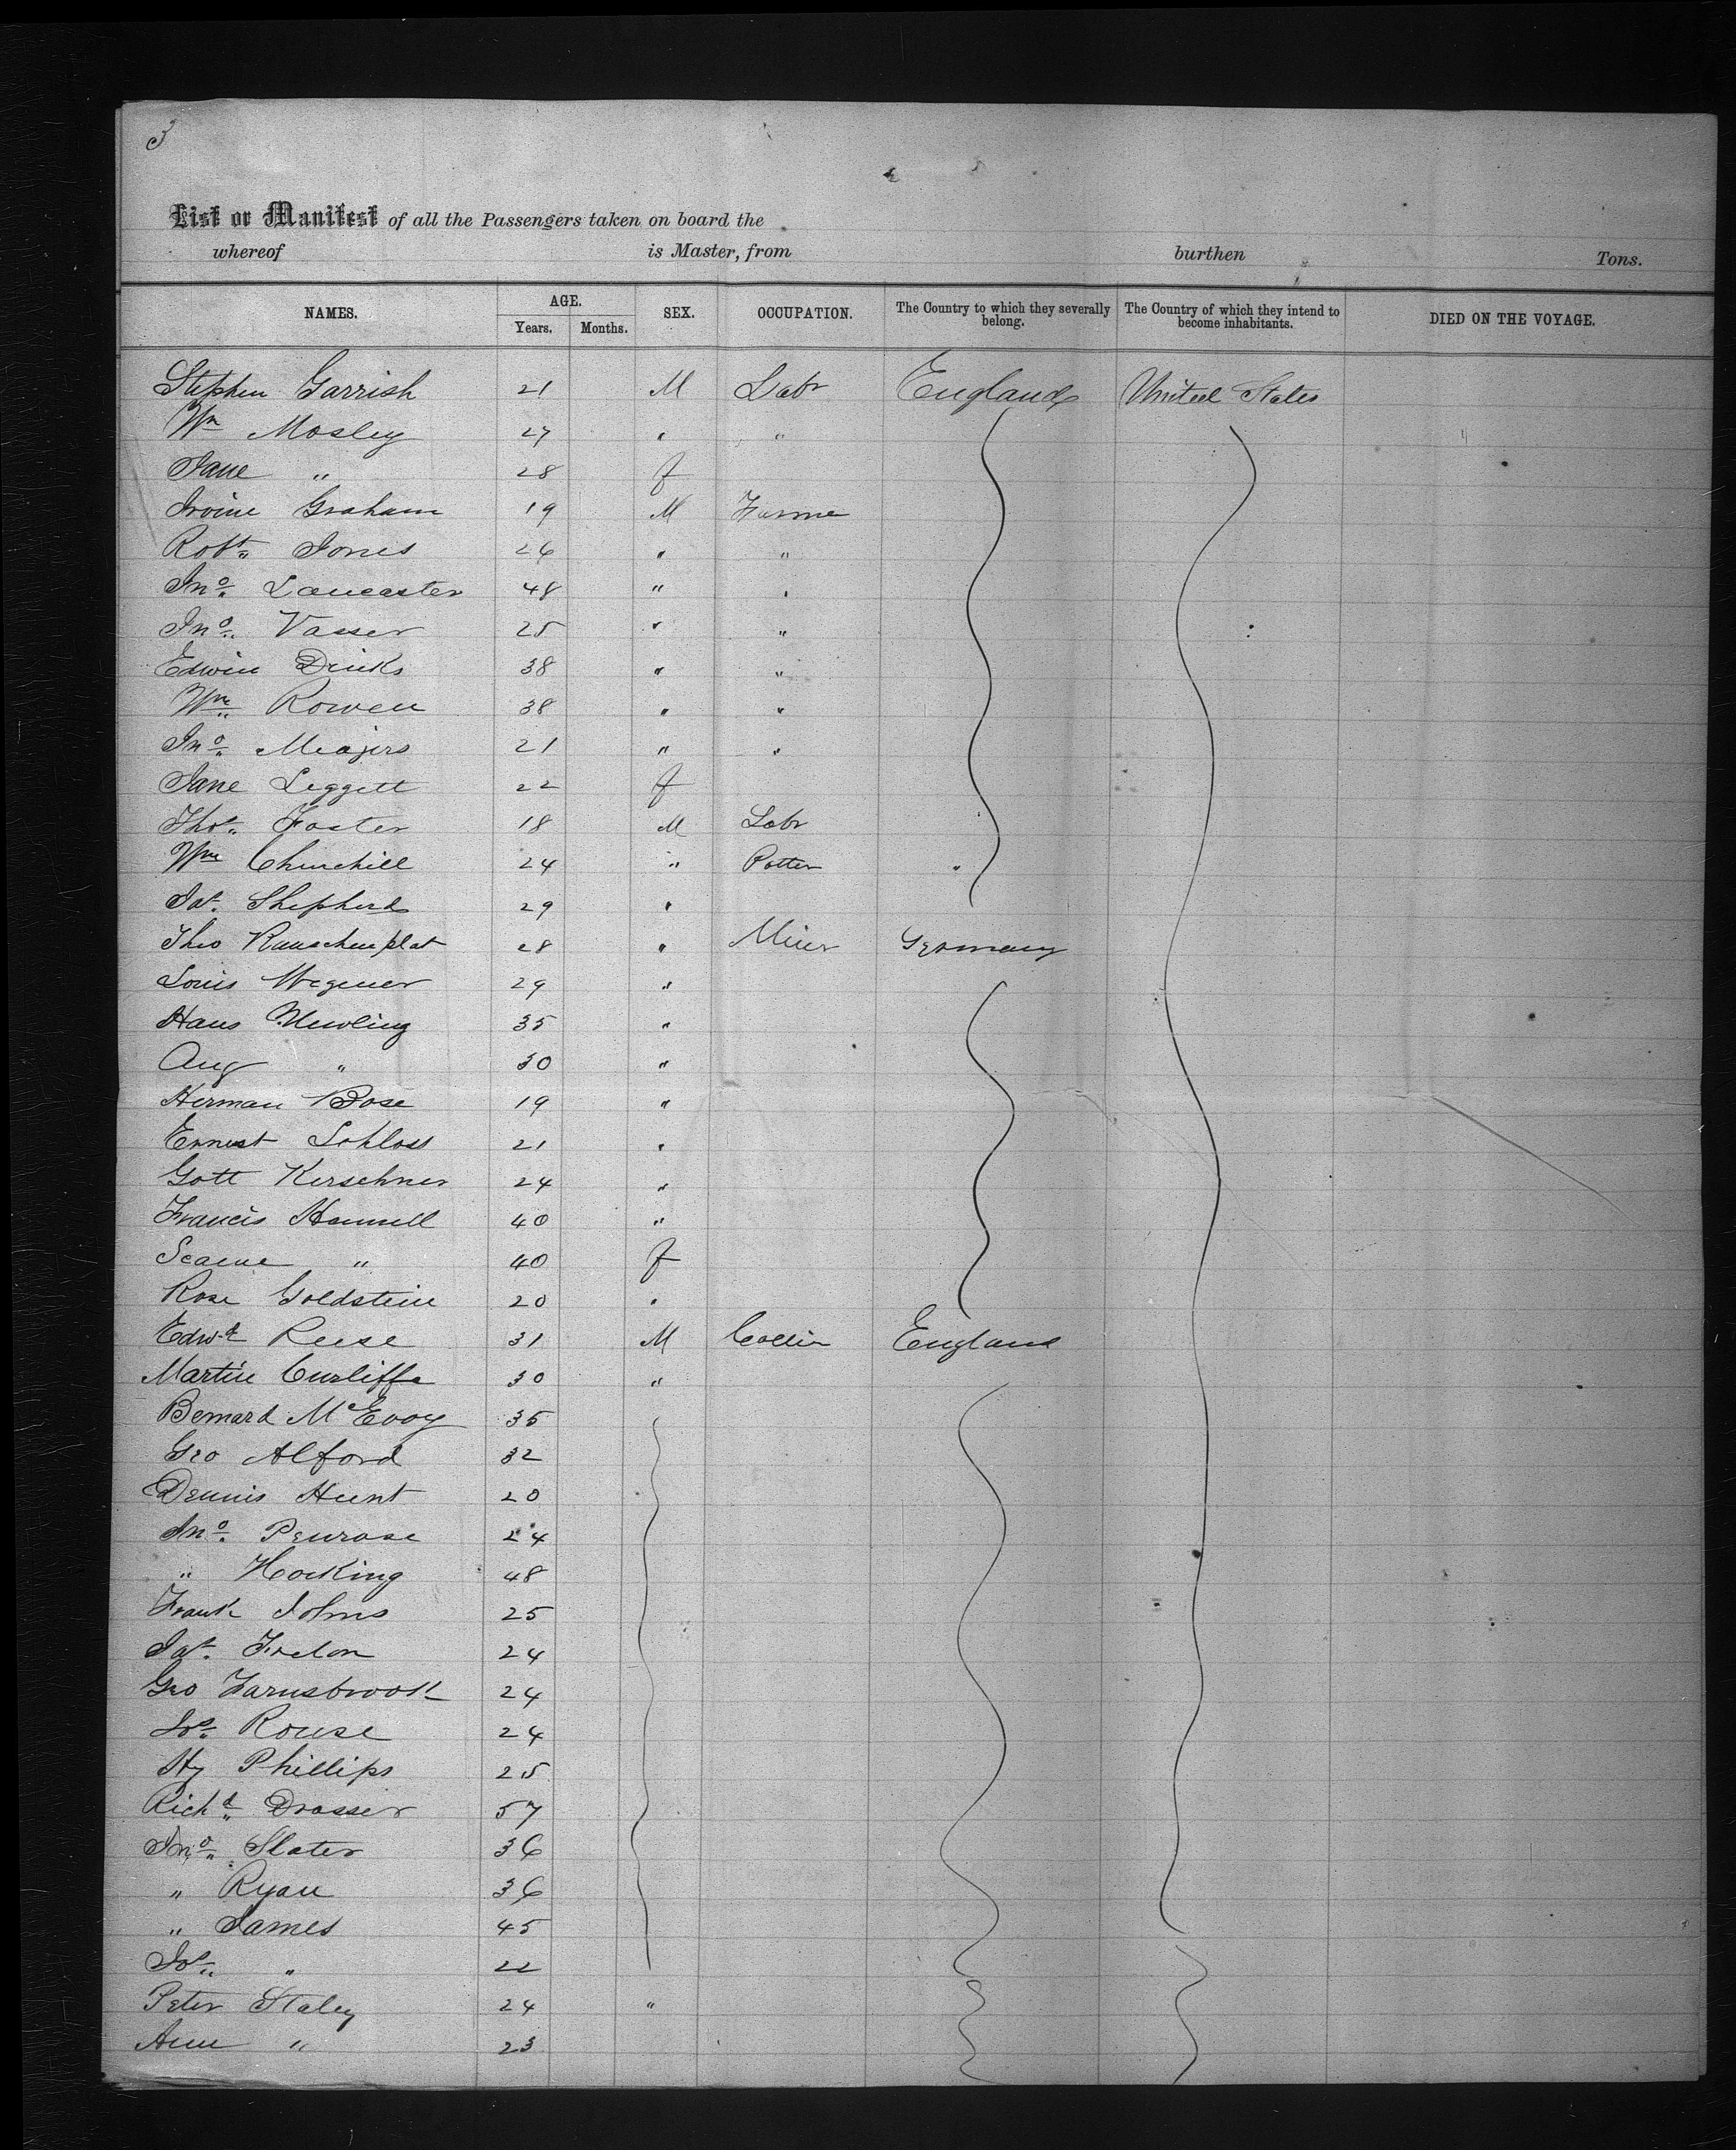 3
List or Manifest of all the Passengers taken on board the
whereof is Master, from burthen Tons.
NAMES. AGE. Years. Months. SEX. OCCUPATION. The Country to which they severally belong. The Country of which they intend to become inhabitants. DIED ON THE VOYAGE.
Stephen Garrish 21 M Labr England United States
Wm Mosley 27 " "
Jane " 28 f
Irvine Graham 19 M Farmer
Robt. Jones 26 " "
Jno. Lancaster 48 " "
Jno. Vasser 25 " "
Edwin Dinks 38 " "
Wm. Rowen 38 " "
Jno. Meajers 21 " "
Jane Leggett 22 f
Thos. Foster 18 M Labr
Wm Churchill 24 " Potter "
Jas. Shepherd 29 "
Theo Rauschenplat 28 " Miner Germany
Louis Wegener 29 "
Hans 35 "
Aug " 30 "
Herman Bose 19 "
Ernest Schloss 21 "
Gott Kerschner 24 "
Francis Hamell 40 "
" 40 f
Rose Goldstein 20 "
Edwd Reese 31 M Collier England
Martin Cunliffe 30 "
Bernard McEvoy 35
Geo Alford 32
Dennis Hunt 20
Jno. Penrose 24
" Hocking 48
Frank Johns 25
Jas. 24
Geo Farnsbrook 24
Jos. Rouse 24
Hy Phillips 25
Richd. Drasser 57
Jno. Slater 36
" Ryan 36
" James 45
Jos. " 22
Peter Staley 24 "
Ann " 23